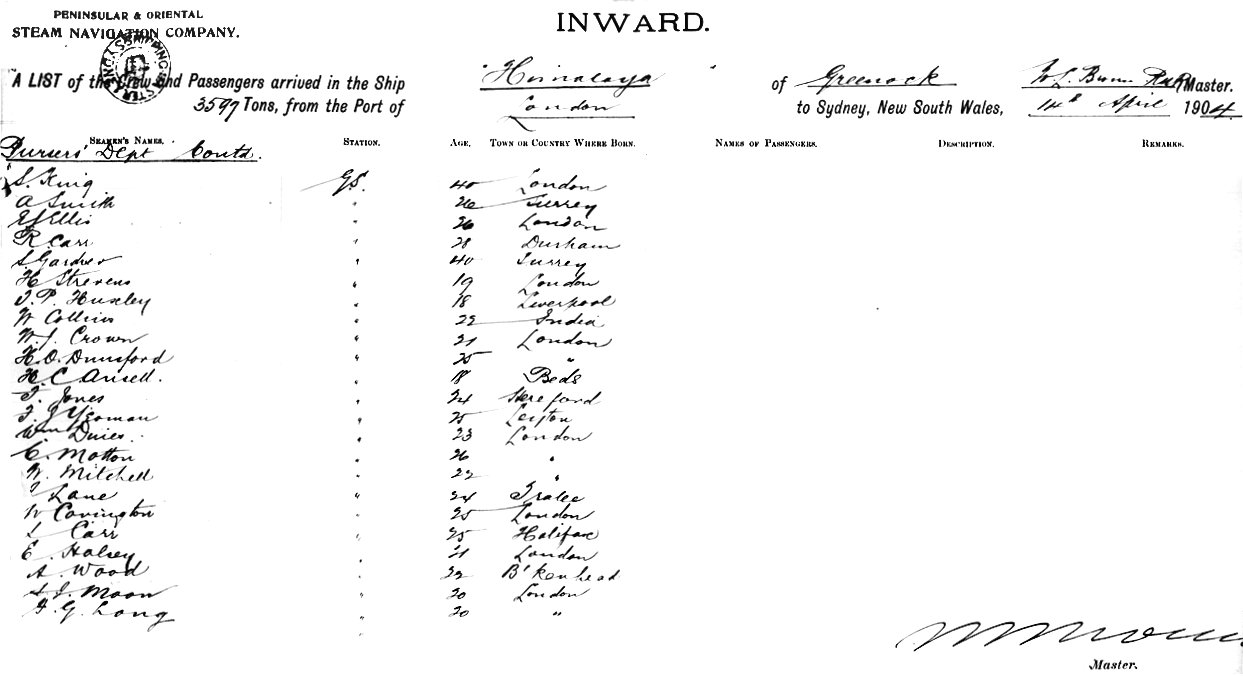 PENINSULAR & ORIENTAL
STEAM NAVIGATION COMPANY.
INWARD.
A LIST of the Crew and Passengers arrived in the Ship "Himalaya" of Greenock W L Brown RNR Master.
3597 Tons, from the Port of London to Sydney, New South Wales, 14th April 1904.
SEAMEN'S NAMES. STATION. AGE. TOWN OR COUNTRY WHERE BORN. NAMES OF PASSENGERS. DESCRIPTION. REMARKS.
Pursers' Dept Contd.
S. King GS. 40 London
A Smith " 26 Surrey
E J Ellis " 26 London
R. Carr " 28 Durham
S Gardner " 40 Surrey
H Strevens " 19 London
J. P. Huxley " 18 Liverpool
W Collins " 22 India
W. J. Crown " 21 London
H. O. Dunsford " 25 "
H. C Ansell. " 18 Beds
J. Jones " 24 Hereford
T. J Yeoman " 25 Leyton
Wm Dines " 23 London
C. Motton " 26 "
W. Mitchell " 22 "
J Lane " 24 Tralee
W Covington " 25 London
L Carr " 25 Halifax
E. Halsey " 21 London
A. Wood " 22 B'kenhead
S. J. Moon " 20 London
F. G. Long " 20 "
Master.